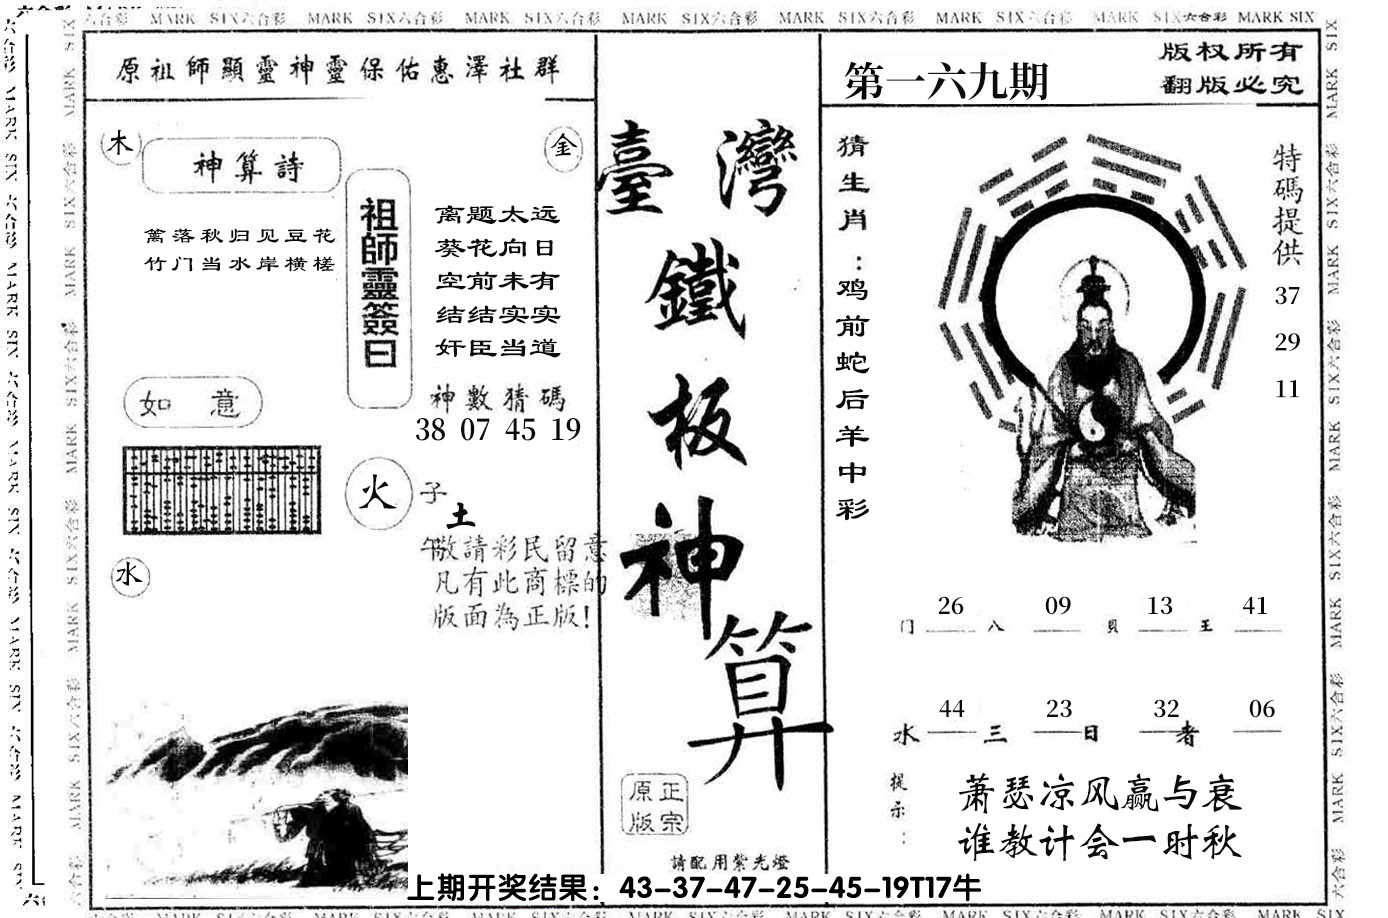 原祖師顯靈神靈保佑惠澤社群
木
神算詩
篱落秋归见豆花
竹门当水岸横槎
如 意
水
金
祖師靈簽曰
离题太远
葵花向日
空前未有
结结实实
奸臣当道
神數猜碼
38 07 45 19
火
子
土
午
敬請彩民留意
凡有此商標的
版面為正版!
臺灣
鐵
板
神
算
正宗
原版
請配用紫光燈
第一六九期
版权所有
翻版必究
猜生肖:鸡前蛇后羊中彩
特碼提供
37
29
11
26 09 13 41
门 八 貝 王
44 23 32 06
水 三 日 者
提示:
萧瑟凉风赢与衰
谁教计会一时秋
上期开奖结果：43-37-47-25-45-19T17牛
MARK SIX六合彩 MARK SIX六合彩 MARK SIX六合彩 MARK SIX六合彩 MARK SIX六合彩 MARK SIX六合彩 MARK SIX六合彩 MARK SIX